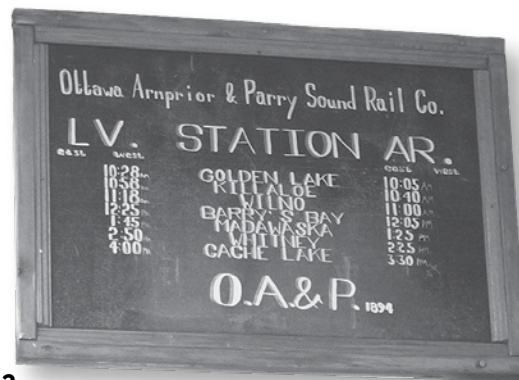 Ottawa Arnprior & Parry Sound Rail Co.
LV. STATION AR.
east west east west
10:28 GOLDEN LAKE 10:05 AM
10:58 KILLALOE 10:40 AM
11:18 WILNO 11:00 AM
12:25 BARRY'S BAY 12:05 PM
1:45 MADAWASKA 1:25 PM
2:50 WHITNEY 2:25 PM
4:00 CACHE LAKE 3:30 PM
O.A.&P. 1894